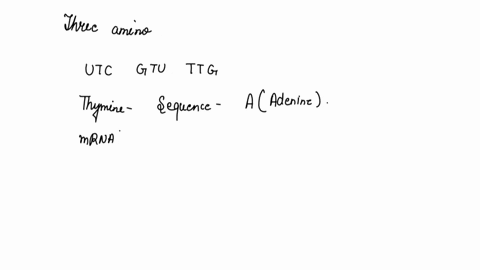 Three amino
UTC GTU TTG
Thymine- Sequence- A (Adenine).
mRNA